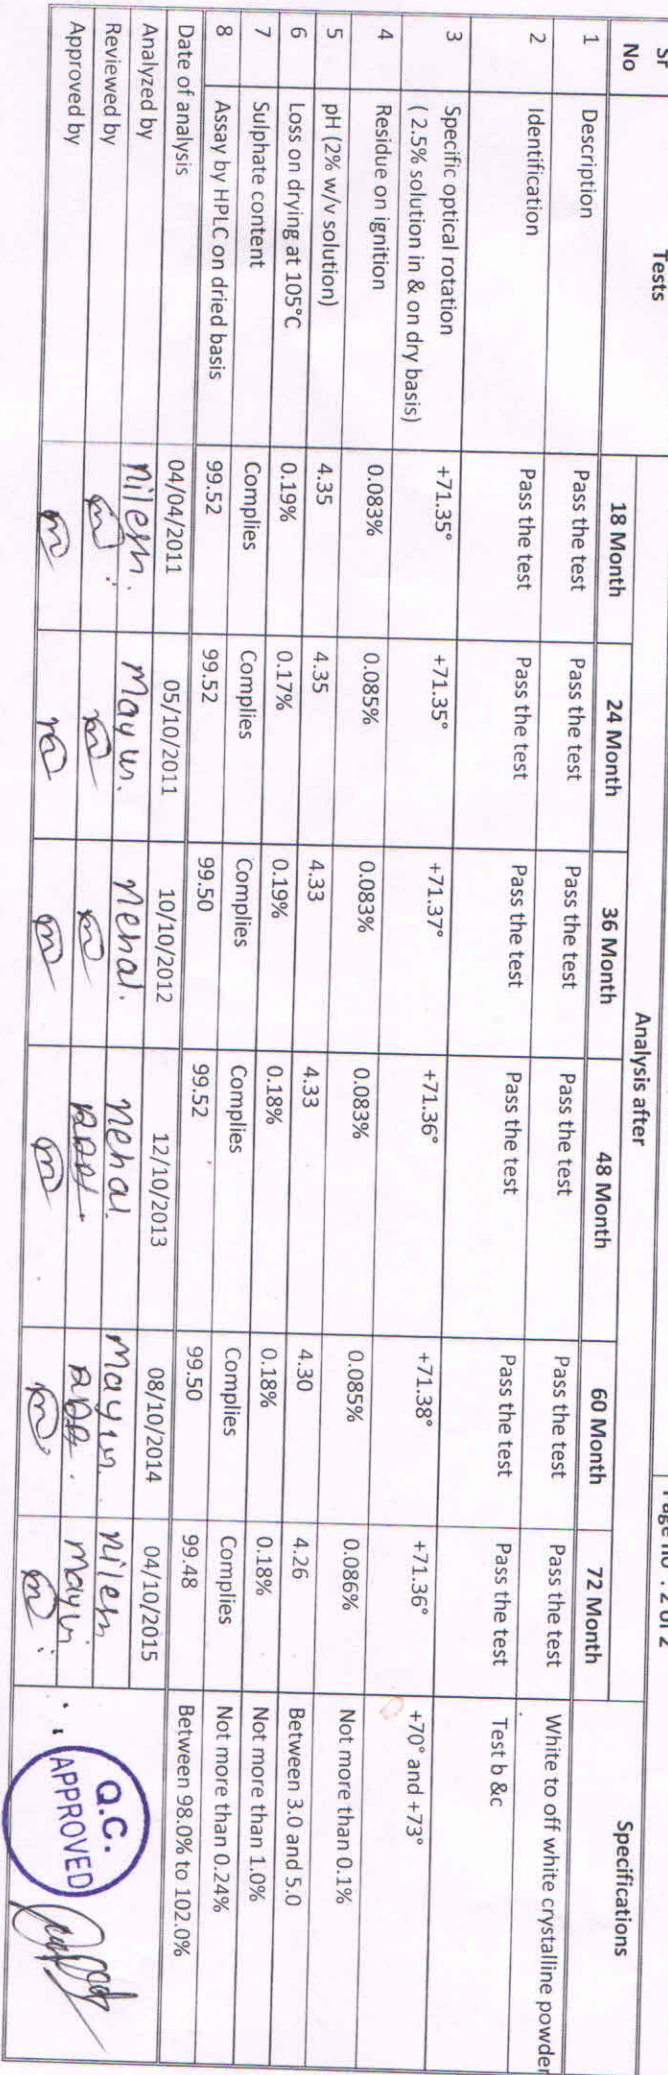 Page no : 2 of 2
Sr No | Tests | Analysis after | Specifications
18 Month | 24 Month | 36 Month | 48 Month | 60 Month | 72 Month
1 | Description | Pass the test | Pass the test | Pass the test | Pass the test | Pass the test | Pass the test | White to off white crystalline powder
2 | Identification | Pass the test | Pass the test | Pass the test | Pass the test | Pass the test | Pass the test | Test b &c
3 | Specific optical rotation
( 2.5% solution in & on dry basis) | +71.35° | +71.35° | +71.37° | +71.36° | +71.38° | +71.36° | +70° and +73°
4 | Residue on ignition | 0.083% | 0.085% | 0.083% | 0.083% | 0.085% | 0.086% | Not more than 0.1%
5 | pH (2% w/v solution) | 4.35 | 4.35 | 4.33 | 4.33 | 4.30 | 4.26 | Between 3.0 and 5.0
6 | Loss on drying at 105°C | 0.19% | 0.17% | 0.19% | 0.18% | 0.18% | 0.18% | Not more than 1.0%
7 | Sulphate content | Complies | Complies | Complies | Complies | Complies | Complies | Not more than 0.24%
8 | Assay by HPLC on dried basis | 99.52 | 99.52 | 99.50 | 99.52 | 99.50 | 99.48 | Between 98.0% to 102.0%
Date of analysis | 04/04/2011 | 05/10/2011 | 10/10/2012 | 12/10/2013 | 08/10/2014 | 04/10/2015
Analyzed by | nilesh. | Mayur. | nehal. | nehal. | Mayur. | nilesh
Reviewed by | mayur
Approved by
Q.C.
APPROVED